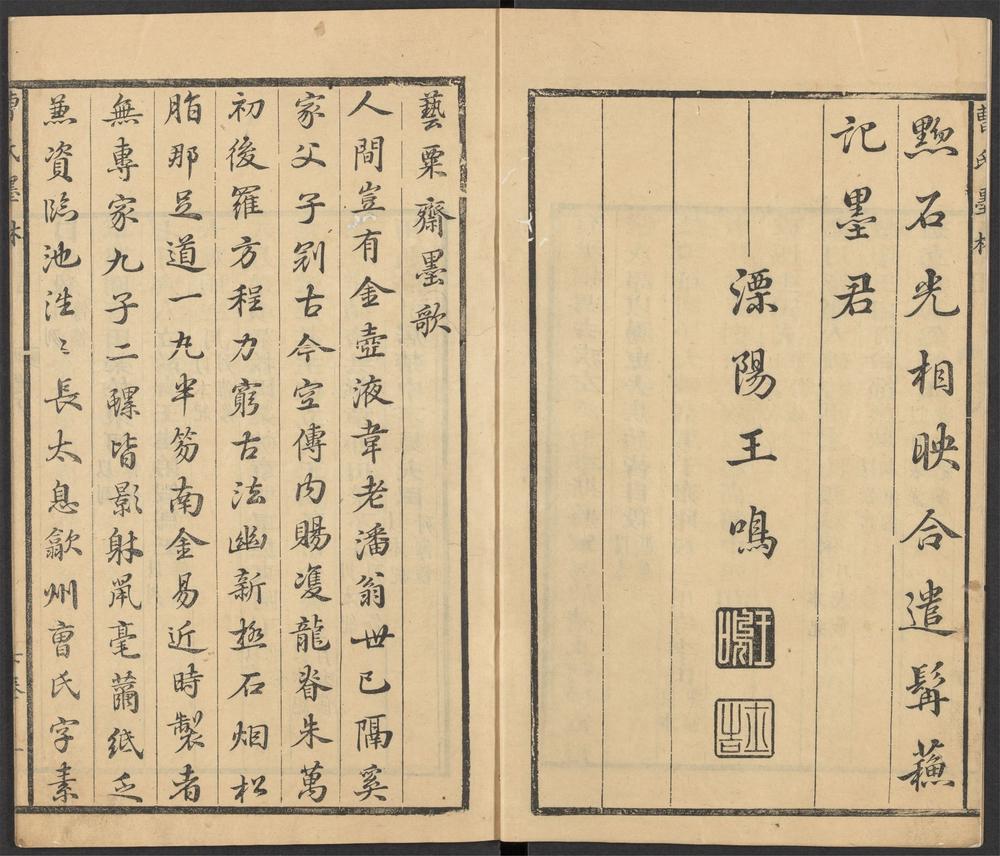 曹氏墨林
黝石光相映合遣髯蘓
記墨君
溧陽王鳴
藝粟齋墨歌
人間豈有金壺液韋老潘翁世已隔奚
家父子剏古今空傳內賜雙龍眷朱萬
初後羅方程力窮古法幽新極石烟松
脂那足道一丸半笏南金易近時製者
無專家九子二螺皆影射鼠毫繭紙乏
蒹資臨池泩〻長太息歙州曹氏字素
曹氏墨林